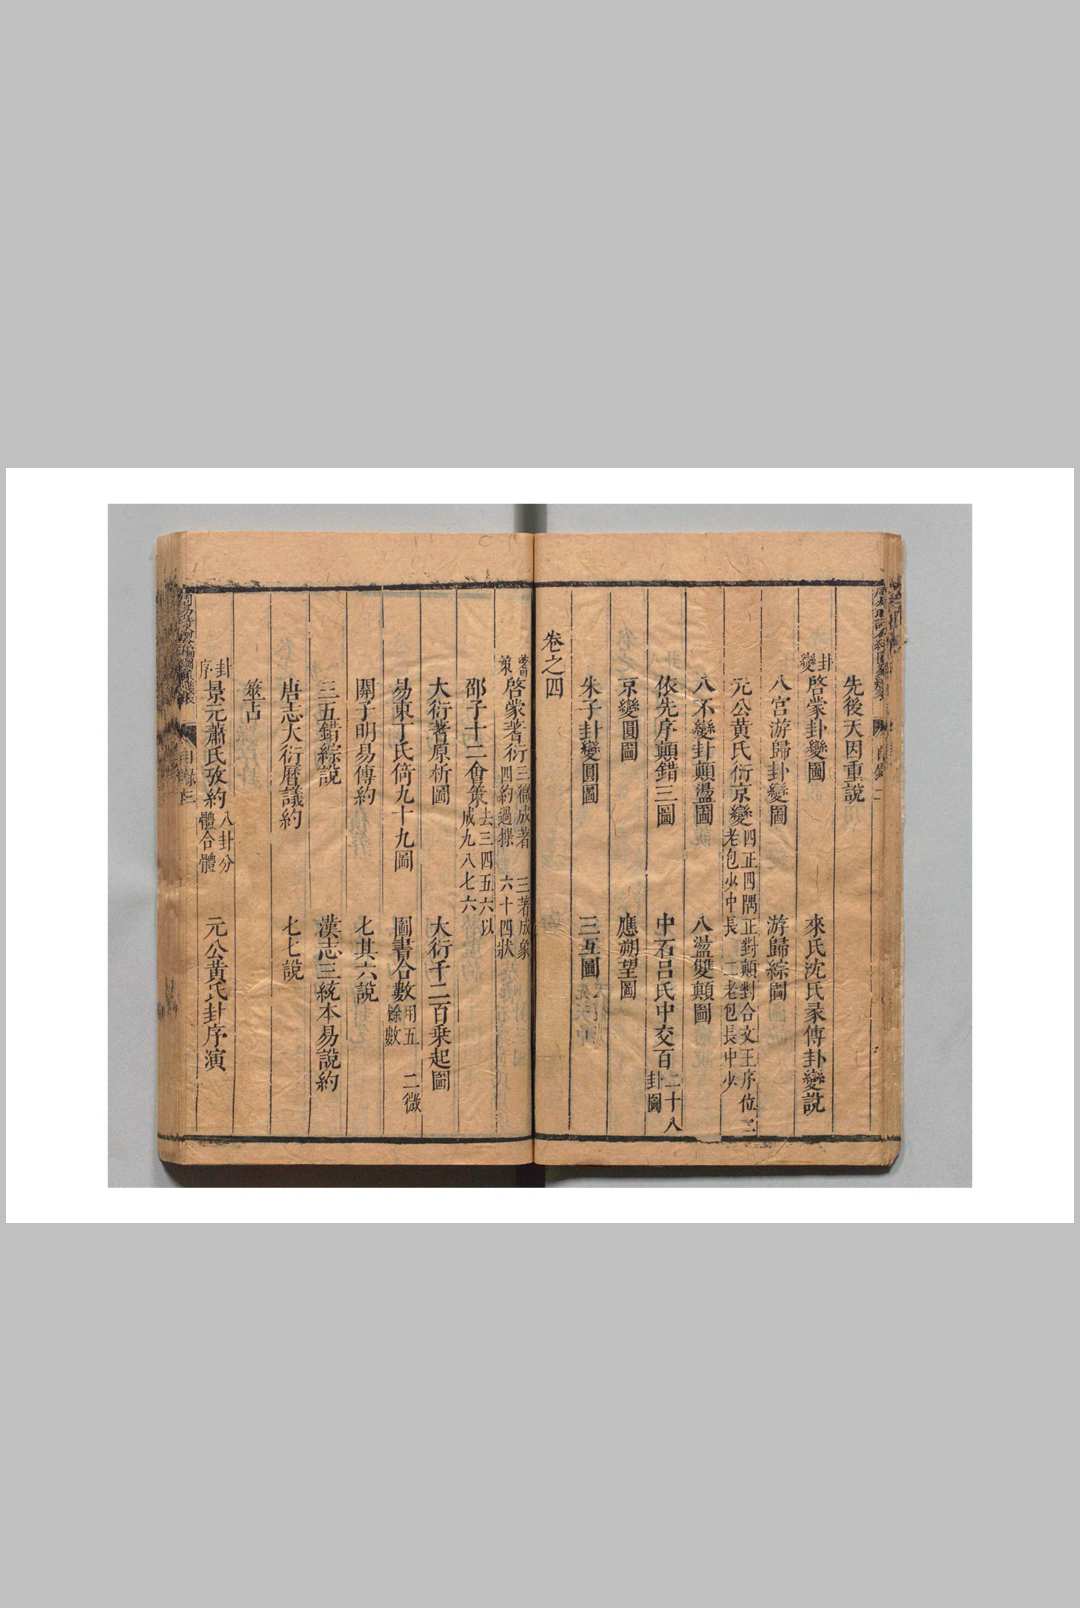 先後天因重說
卦變 啓蒙卦變圖 來氏沈氏彖傳卦變說
八宮游歸卦變圖 游歸綜圖
元公黃氏衍京變 四正四隅 正對顛對合文王序位 老包少中長 二老包長中少
八不變卦顛盪圖 八盪雙顛圖
依先序顛錯三圖 中石呂氏中交百二十八卦圖
京變圓圖 應朔望圖
朱子卦變圓圖 三互圖
卷之四
蓍策 啓蒙蓍衍 三微成著 三著成象 四約過揲 六十四狀
邵子十二會策 去三四五六以成九八七六
大衍蓍原析圖 大衍千二百乘起圖
易東丁氏倚九十九圖 圖書合數 用五餘數 二微
關子明易傳約 七其六說
三五錯綜說 漢志三統本易說約
唐志大衍曆議約 七七說
筮占
卦序 景元蕭氏攷約 八卦分體合體 元公黃氏卦序演
目錄 三